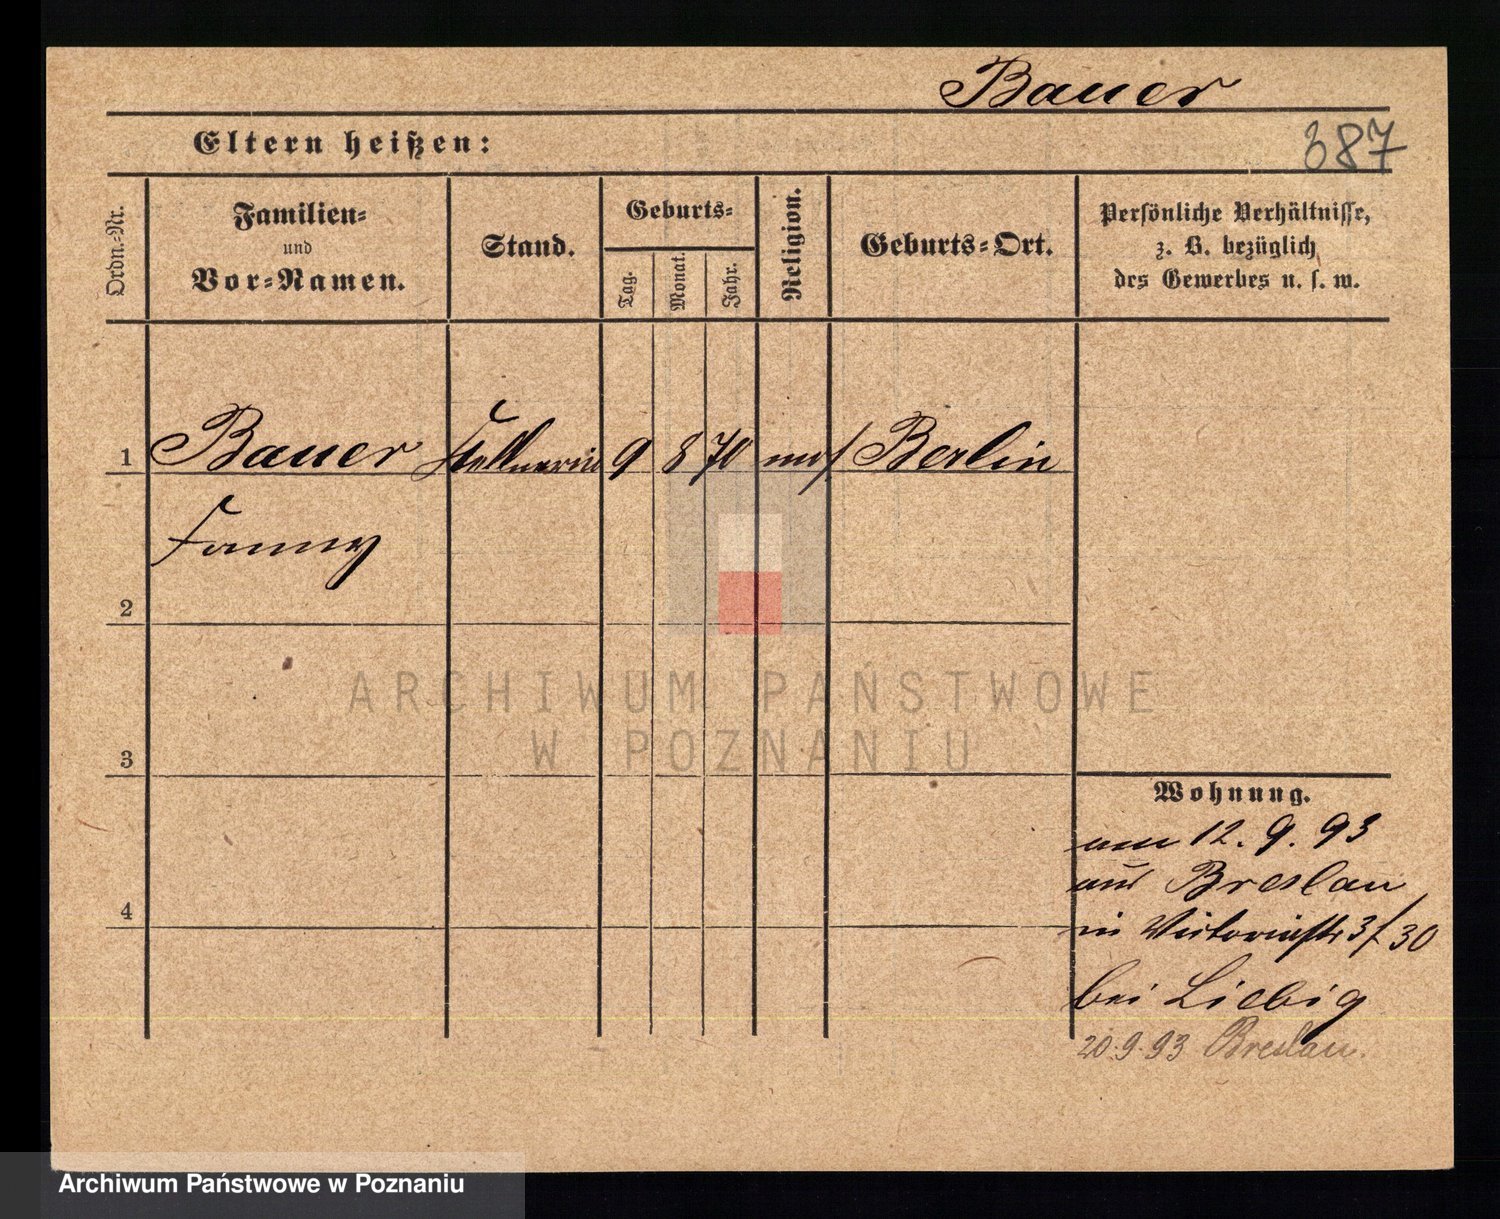 Bauer
387
Eltern heißen:
Ordn.-Nr.
Familien-
und
Vor-Namen.
Stand.
Geburts-
Tag.
Monat.
Jahr.
Religion.
Geburts-Ort.
Persönliche Verhältnisse,
z. B. bezüglich
des Gewerbes u. s. w.
1 Bauer Kellnerin 9 8 70 Berlin
Fanny
2
3
4
ARCHIWUM PAŃSTWOWE
W POZNANIU
Wohnung.
am 12. 9. 93
aus Breslau
in Victoriastr 30
bei Liebig
20.9.93 Breslau.
Archiwum Państwowe w Poznaniu